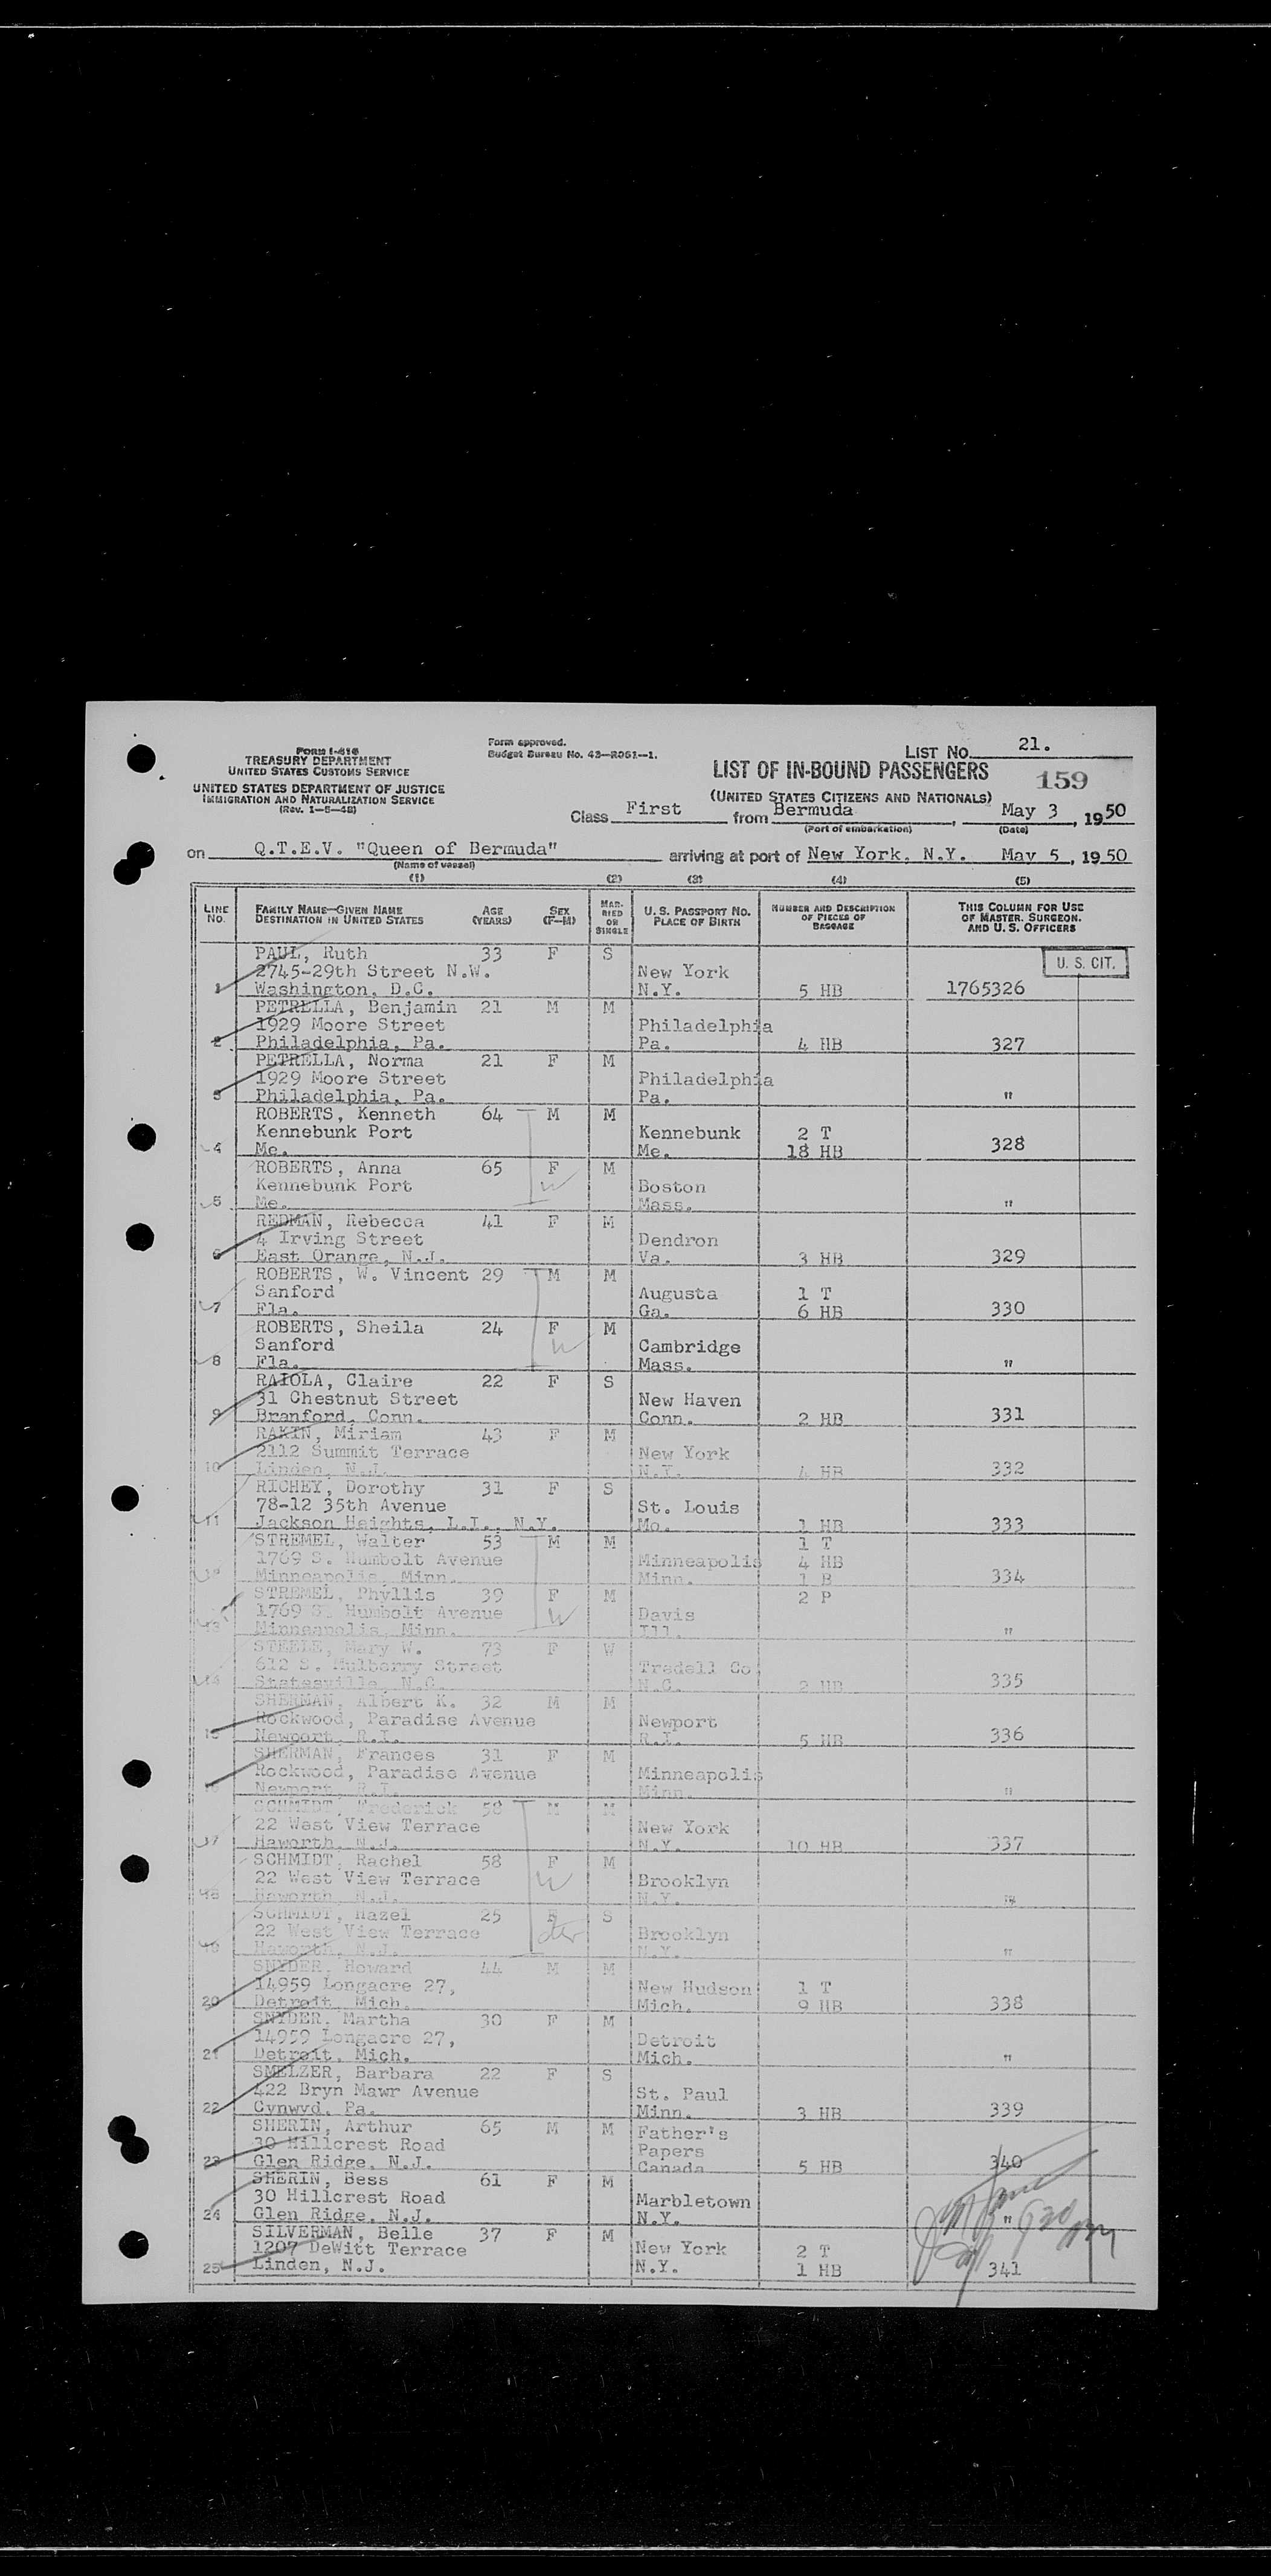 FORM I-416
TREASURY DEPARTMENT
UNITED STATES CUSTOMS SERVICE
UNITED STATES DEPARTMENT OF JUSTICE
IMMIGRATION AND NATURALIZATION SERVICE
(Rev. 1—5—48)
Form approved.
Budget Bureau No. 43—R061—1.
LIST NO. 21.
LIST OF IN-BOUND PASSENGERS
159
(UNITED STATES CITIZENS AND NATIONALS)
Class First from Bermuda, May 3, 1950
(Port of embarkation) (Date)
on Q.T.E.V. "Queen of Bermuda" arriving at port of New York, N.Y. May 5, 1950
(Name of vessel)
(1) (2) (3) (4) (5)
LINE NO. FAMILY NAME—GIVEN NAME DESTINATION IN UNITED STATES AGE (YEARS) SEX (F—M) MARRIED OR SINGLE U. S. PASSPORT NO. PLACE OF BIRTH NUMBER AND DESCRIPTION OF PIECES OF BAGGAGE THIS COLUMN FOR USE OF MASTER, SURGEON, AND U. S. OFFICERS
PAUL, Ruth 33 F S U. S. CIT.
2745-29th Street N.W. New York
1 Washington, D.C. N.Y. 5 HB 1765326
PETRELLA, Benjamin 21 M M
1929 Moore Street Philadelphia
2 Philadelphia, Pa. Pa. 4 HB 327
PETRELLA, Norma 21 F M
1929 Moore Street Philadelphia
3 Philadelphia, Pa. Pa. "
ROBERTS, Kenneth 64 M M
Kennebunk Port Kennebunk 2 T
4 Me. Me. 18 HB 328
ROBERTS, Anna 65 F M
Kennebunk Port W Boston
5 Me. Mass. "
REDMAN, Rebecca 41 F M
4 Irving Street Dendron
6 East Orange, N.J. Va. 3 HB 329
ROBERTS, W. Vincent 29 M M
Sanford Augusta 1 T
7 Fla. Ga. 6 HB 330
ROBERTS, Sheila 24 F M
Sanford W Cambridge
8 Fla. Mass. "
RAIOLA, Claire 22 F S
31 Chestnut Street New Haven
9 Branford, Conn. Conn. 2 HB 331
RAKIN, Miriam 43 F M
2112 Summit Terrace New York
10 Linden, N.J. N.Y. 4 HB 332
RICHEY, Dorothy 31 F S
78-12 35th Avenue St. Louis
11 Jackson Heights, L.I., N.Y. Mo. 1 HB 333
STREMEL, Walter 53 M M 1 T
1769 S. Humbolt Avenue Minneapolis 4 HB
12 Minneapolis, Minn. Minn. 1 B 334
STREMEL, Phyllis 39 F M 2 P
1769 S. Humbolt Avenue W Davis
13 Minneapolis, Minn. Ill. "
STEELE, Mary W. 73 F W
612 S. Mulberry Street Tredell Co.
14 Statesville, N.C. N.C. 2 HB 335
SHERMAN, Albert K. 32 M M
Rockwood, Paradise Avenue Newport
15 Newport, R.I. R.I. 5 HB 336
SHERMAN, Frances 31 F M
Rockwood, Paradise Avenue Minneapolis
16 Newport, R.I. Minn. "
SCHMIDT, Frederick 58 M M
22 West View Terrace New York
17 Haworth, N.J. N.Y. 10 HB 337
SCHMIDT, Rachel 58 F M
22 West View Terrace W Brooklyn
18 Haworth, N.J. N.Y. "
SCHMIDT, Hazel 25 F S
22 West View Terrace dtr Brooklyn
19 Haworth, N.J. N.Y. "
SNYDER, Howard 44 M M
14959 Longacre 27, New Hudson 1 T
20 Detroit, Mich. Mich. 9 HB 338
SNYDER, Martha 30 F M
14959 Longacre 27, Detroit
21 Detroit, Mich. Mich. "
SMELZER, Barbara 22 F S
422 Bryn Mawr Avenue St. Paul
22 Cynwyd, Pa. Minn. 3 HB 339
SHERIN, Arthur 65 M M Father's
30 Hillcrest Road Papers
23 Glen Ridge, N.J. Canada 5 HB 340
SHERIN, Bess 61 F M
30 Hillcrest Road Marbletown
24 Glen Ridge, N.J. N.Y. "
SILVERMAN, Belle 37 F M
1207 DeWitt Terrace New York 2 T
25 Linden, N.J. N.Y. 1 HB 341